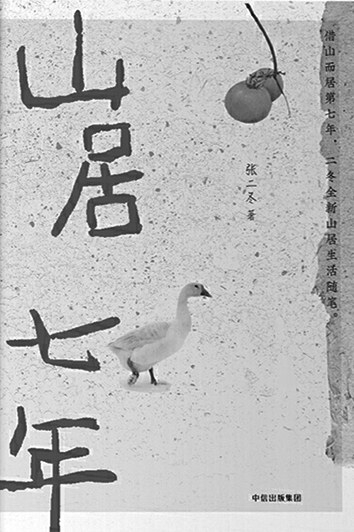 山居七年
借山而居第七年，二冬全新山居生活随笔。
张二冬著
中信出版集团